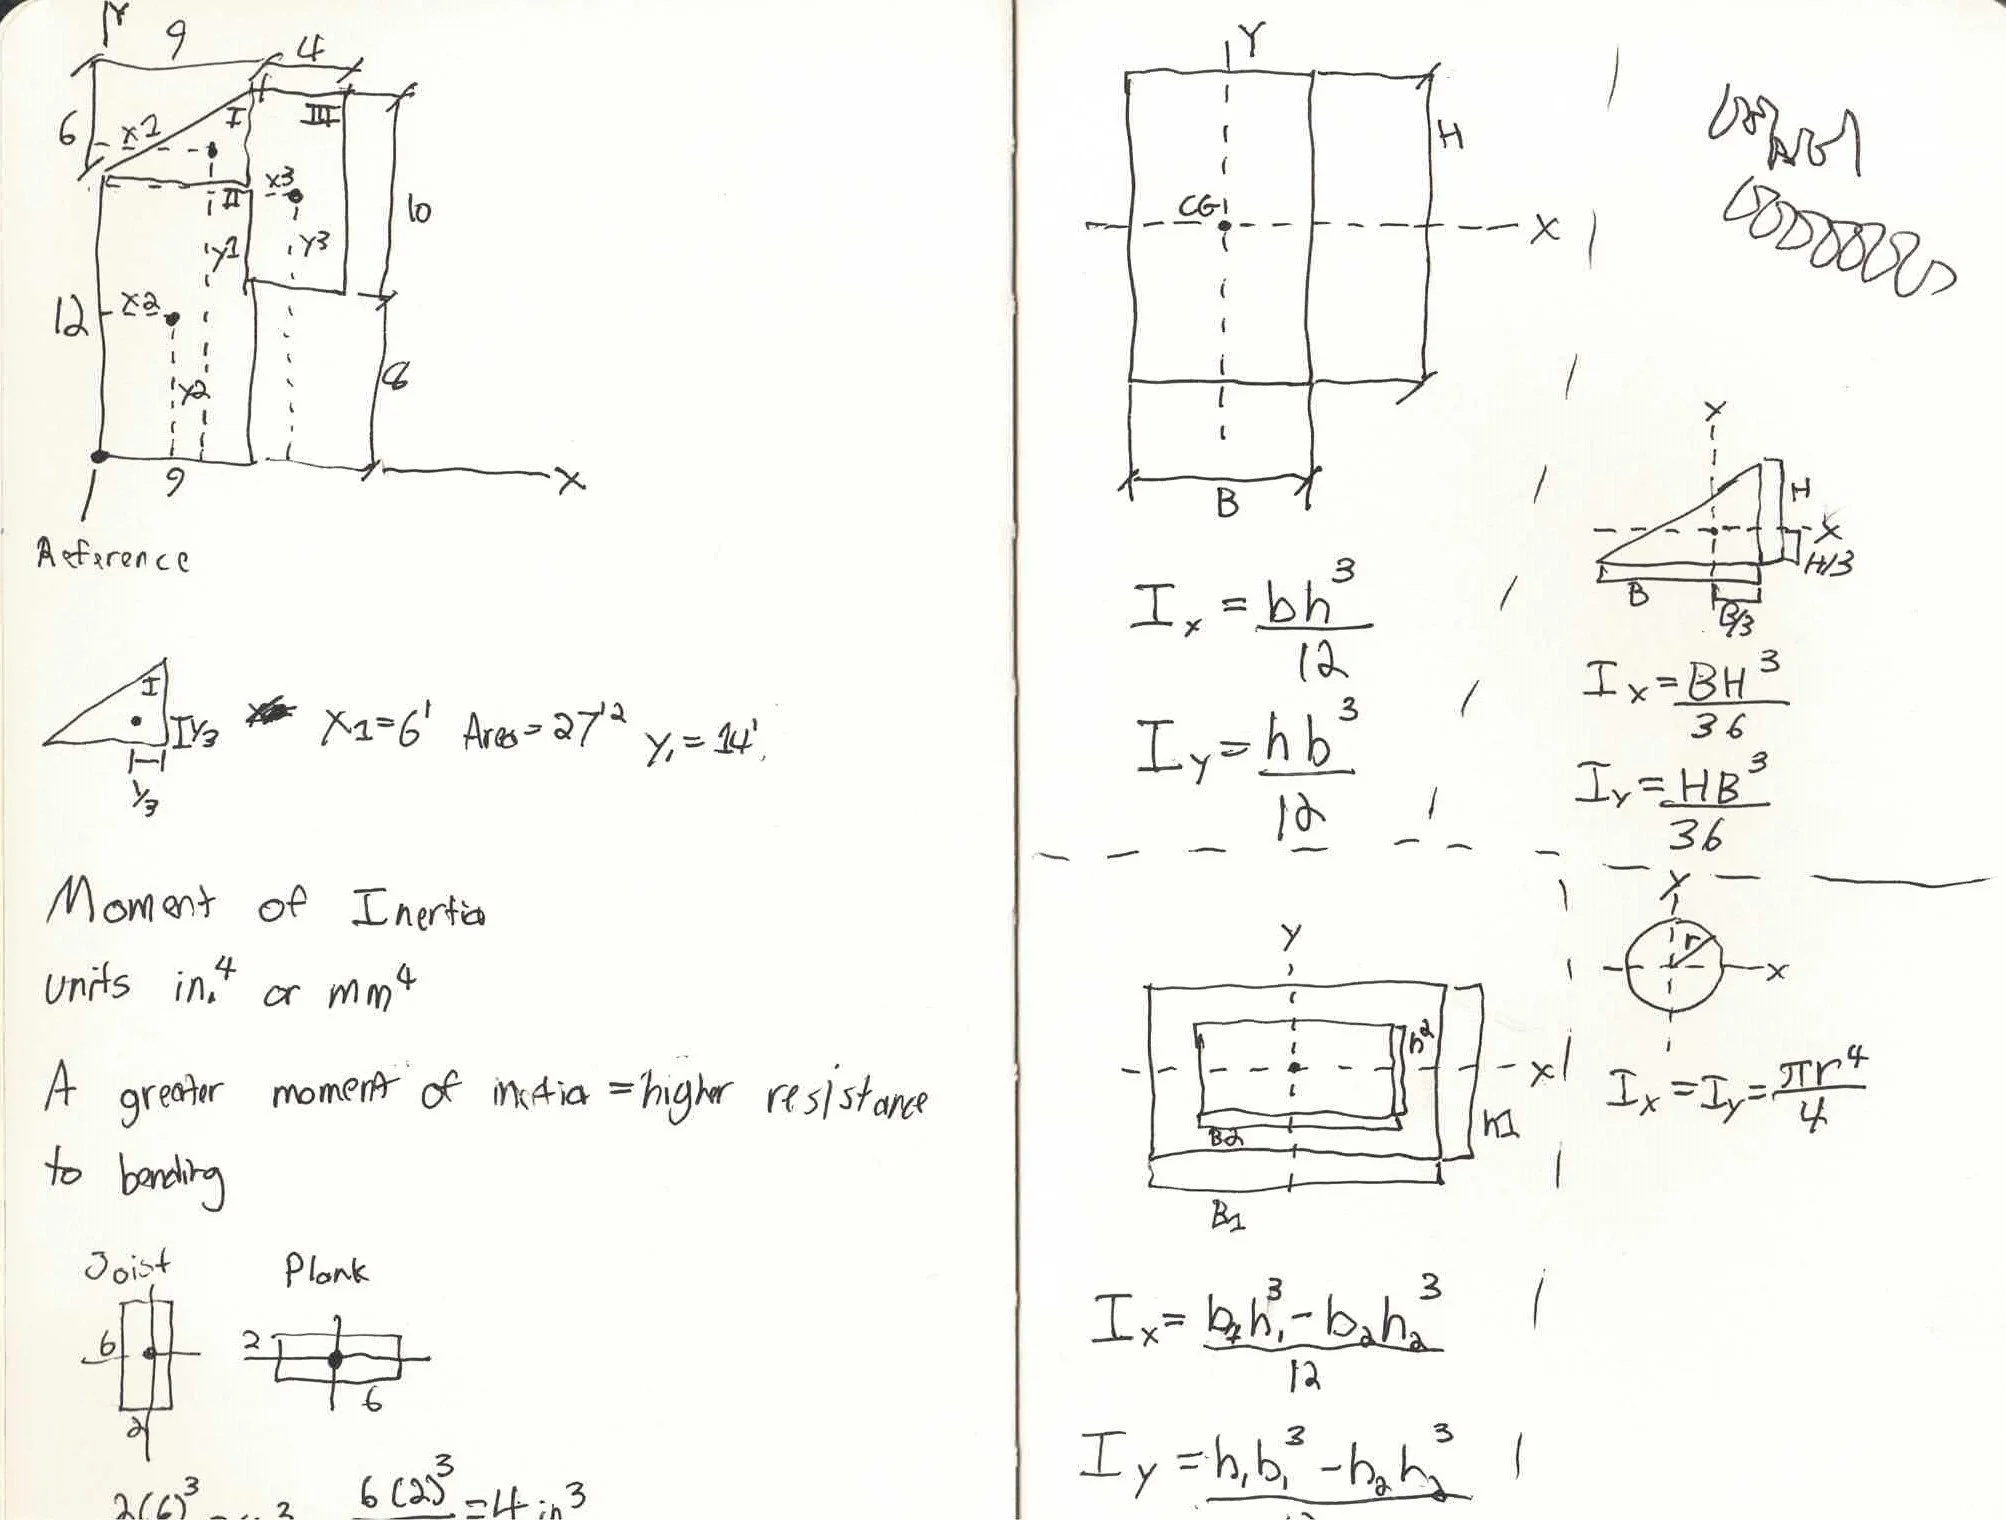 Y
9
4
6
x1
I
III
II
x3
10
y1
y3
12
x2
8
y2
9
X
Reference
I
1/3
1/3
X1=6' Area=27'2 Y1=14'
Moment of Inertia
units in.4 or mm4
A greater moment of inertia = higher resistance
to bending
Joist Plank
6
2
2
6
2(6)3
6(2)3 =4 in3
Y
H
CG
X
B
Ix = bh3
12
Iy = hb3
12
Y
H
X
H/3
B
B/3
Ix = BH3
36
IY = HB3
36
Y
h2
X
B2
h1
B1
Ix = b1h13 - b2h23
12
Iy = h1b13 - h2h23
Y
r
X
Ix = Iy = πr4
4